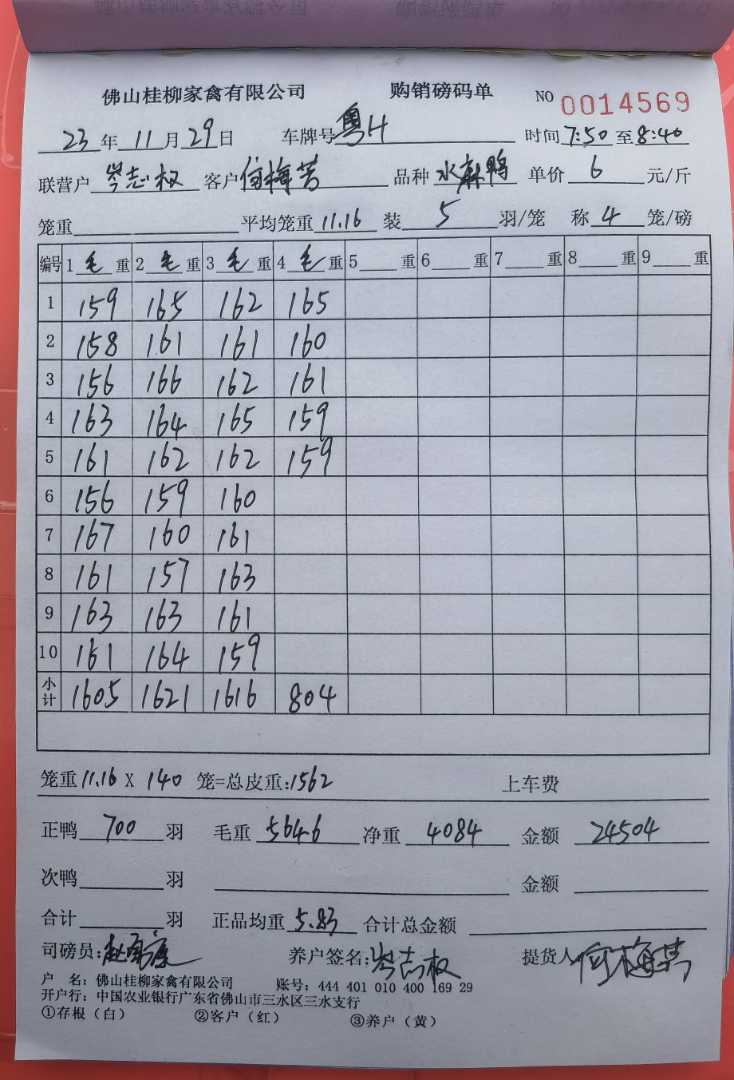 佛山桂柳家禽有限公司 购销磅码单 NO 0014569
23 年 11 月 29 日 车牌号 粤H 时间 7:50 至 8:40
联营户 岑志权 客户 何梅芳 品种 水麻鸭 单价 6 元/斤
笼重 平均笼重 11.16 装 5 羽/笼 称 4 笼/磅
编号 1 毛 重 2 毛 重 3 毛 重 4 毛 重 5 重 6 重 7 重 8 重 9 重
1 159 165 162 165
2 158 161 161 160
3 156 166 162 161
4 163 164 165 159
5 161 162 162 159
6 156 159 160
7 167 160 161
8 161 157 163
9 163 163 161
10 161 164 159
小计 1605 1621 1616 804
笼重 11.16 X 140 笼=总皮重:1562 上车费
正鸭 700 羽 毛重 5646 净重 4084 金额 24504
次鸭 羽 金额
合计 羽 正品均重 5.83 合计总金额
司磅员: 养户签名: 岑志权 提货人 何梅芳
户 名: 佛山桂柳家禽有限公司 账号: 444 401 010 400 169 29
开户行: 中国农业银行广东省佛山市三水区三水支行
①存根（白） ②客户（红） ③养户（黄）